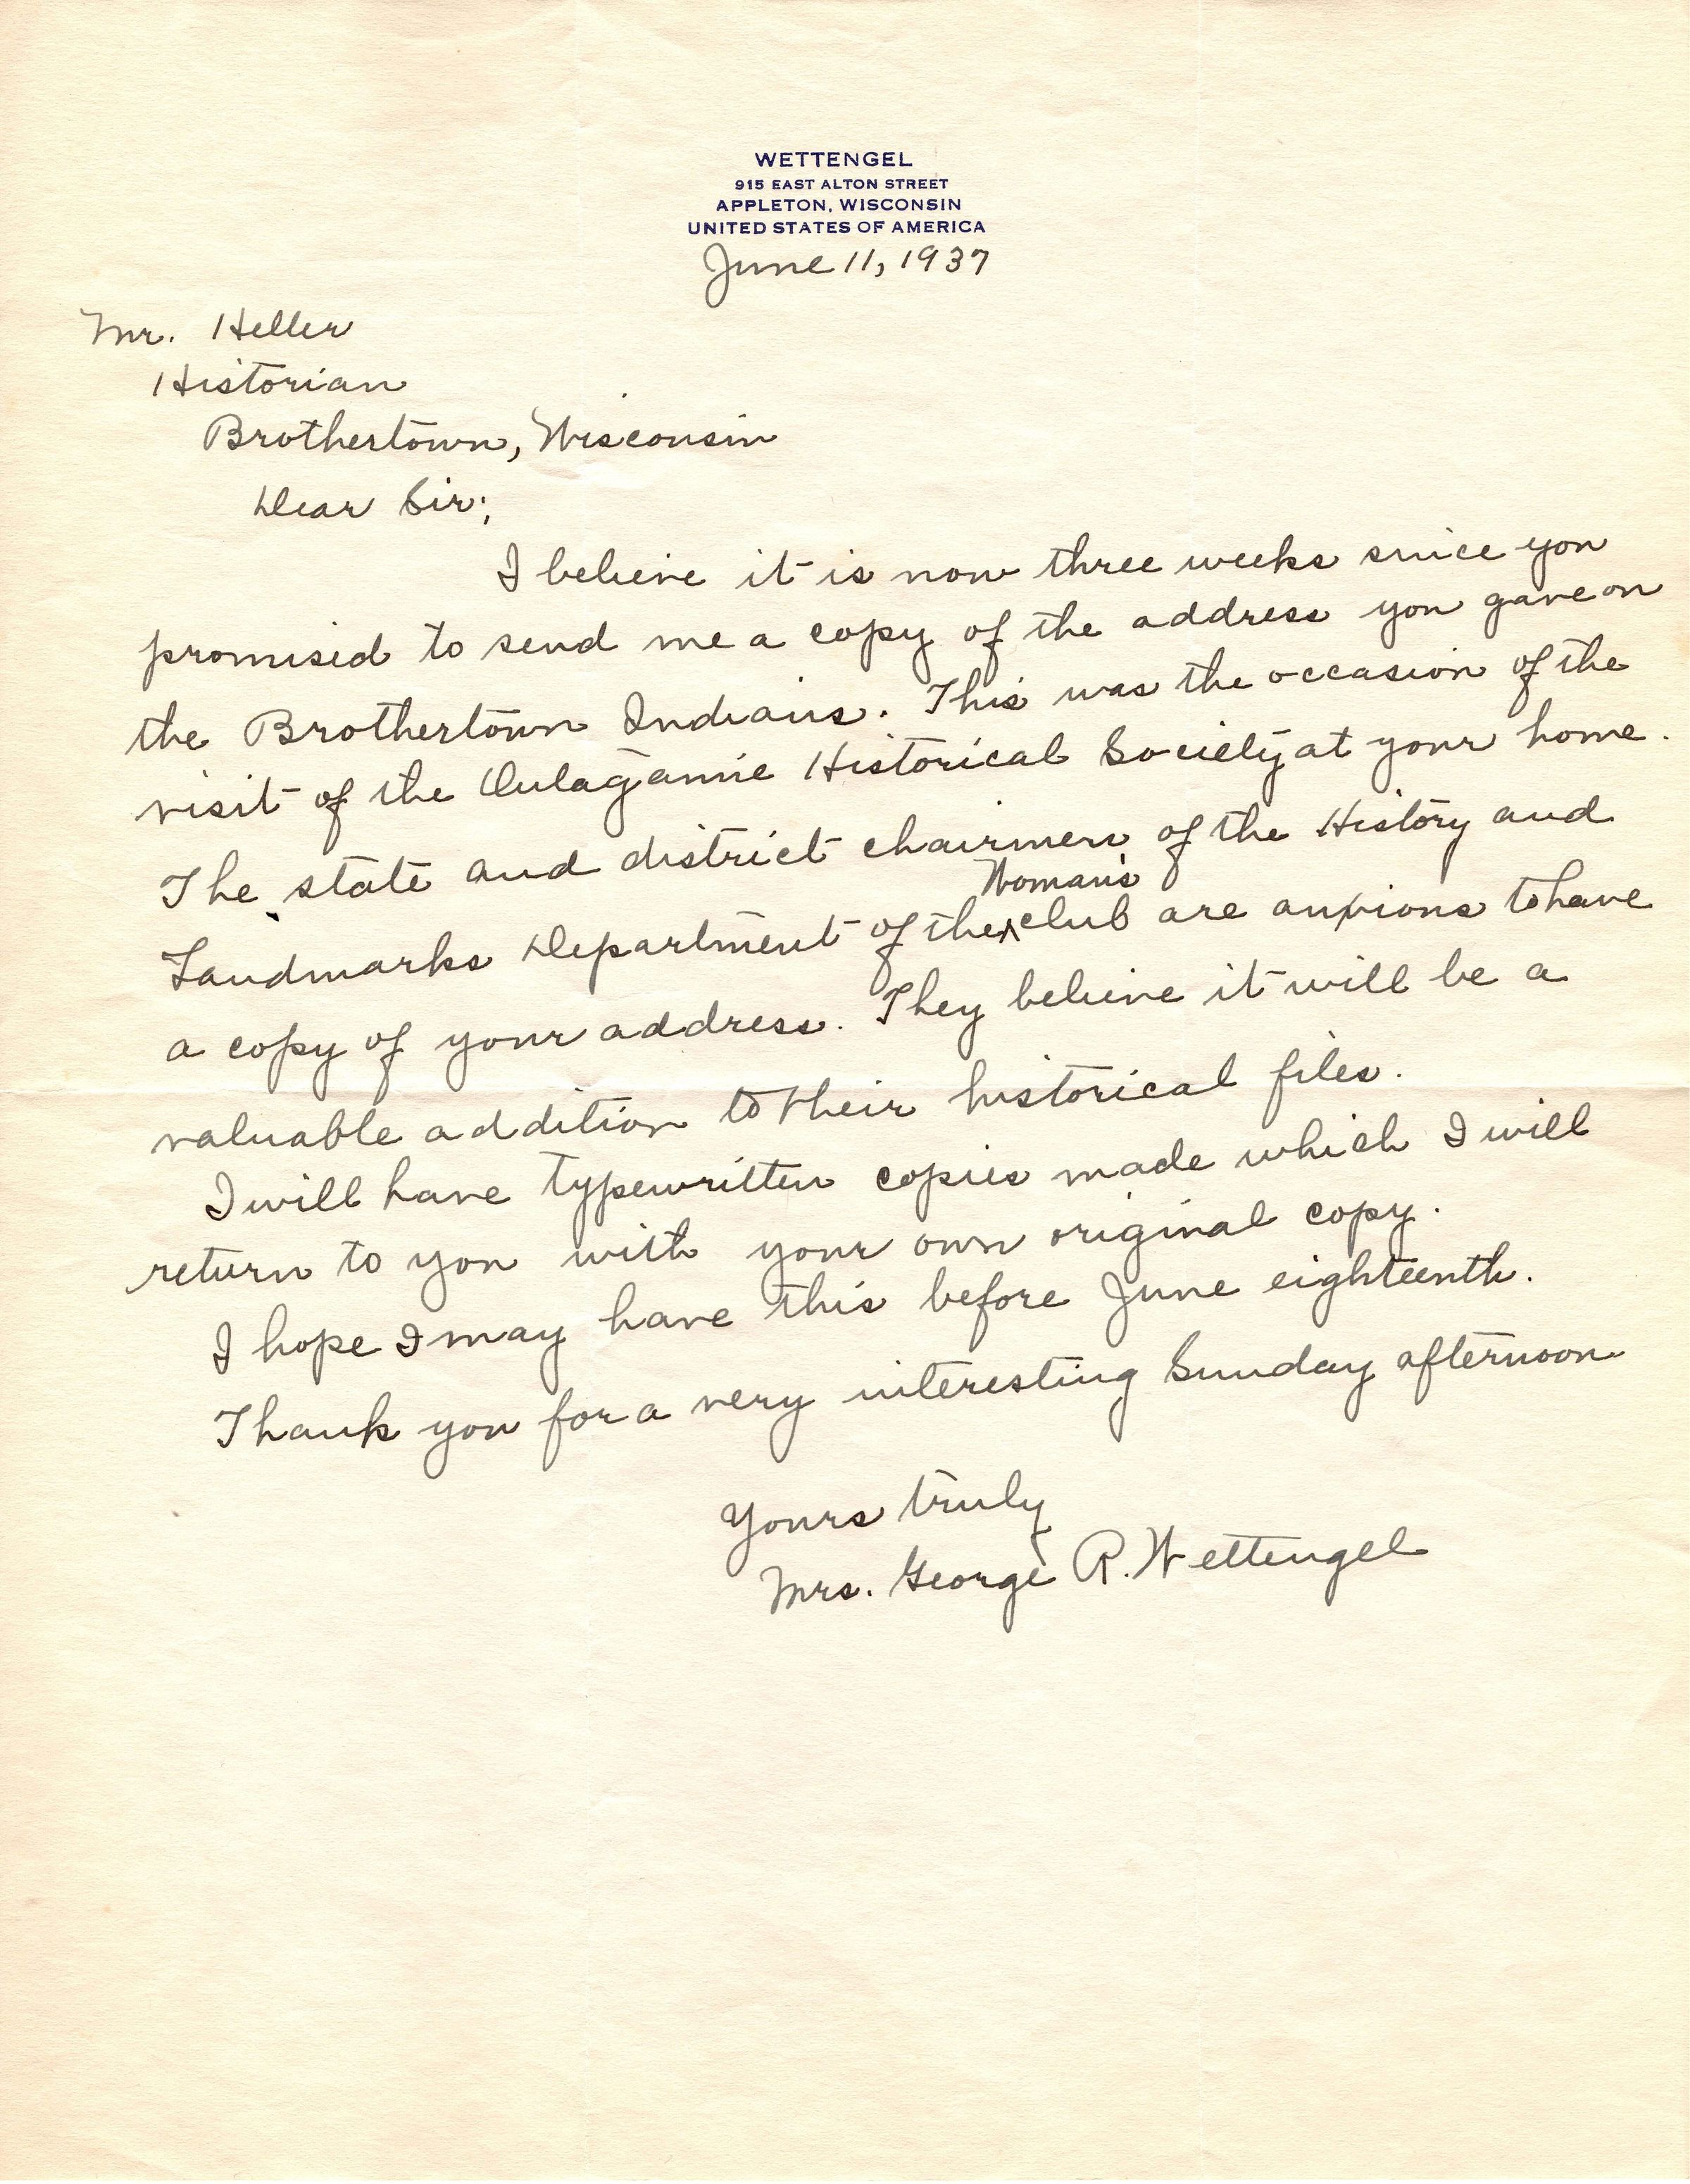 WETTENGEL
915 EAST ALTON STREET
APPLETON, WISCONSIN
UNITED STATES OF AMERICA
June 11, 1937
Mr. Heller
Historian
Brothertown, Wisconsin
Dear Sir;
I believe it is now three weeks since you
promised to send me a copy of the address you gave on
the Brothertown Indians. This was the occasion of the
visit of the Outagamie Historical Society at your home.
The state and district chairmen of the History and
Woman's
Landmarks Department of the ^ club are anxious to have
a copy of your address. They believe it will be a
valuable addition to their historical files.
I will have typewritten copies made which I will
return to you with your own original copy.
I hope I may have this before June eighteenth.
Thank you for a very interesting Sunday afternoon
Yours truly
Mrs. George R. Wettengel